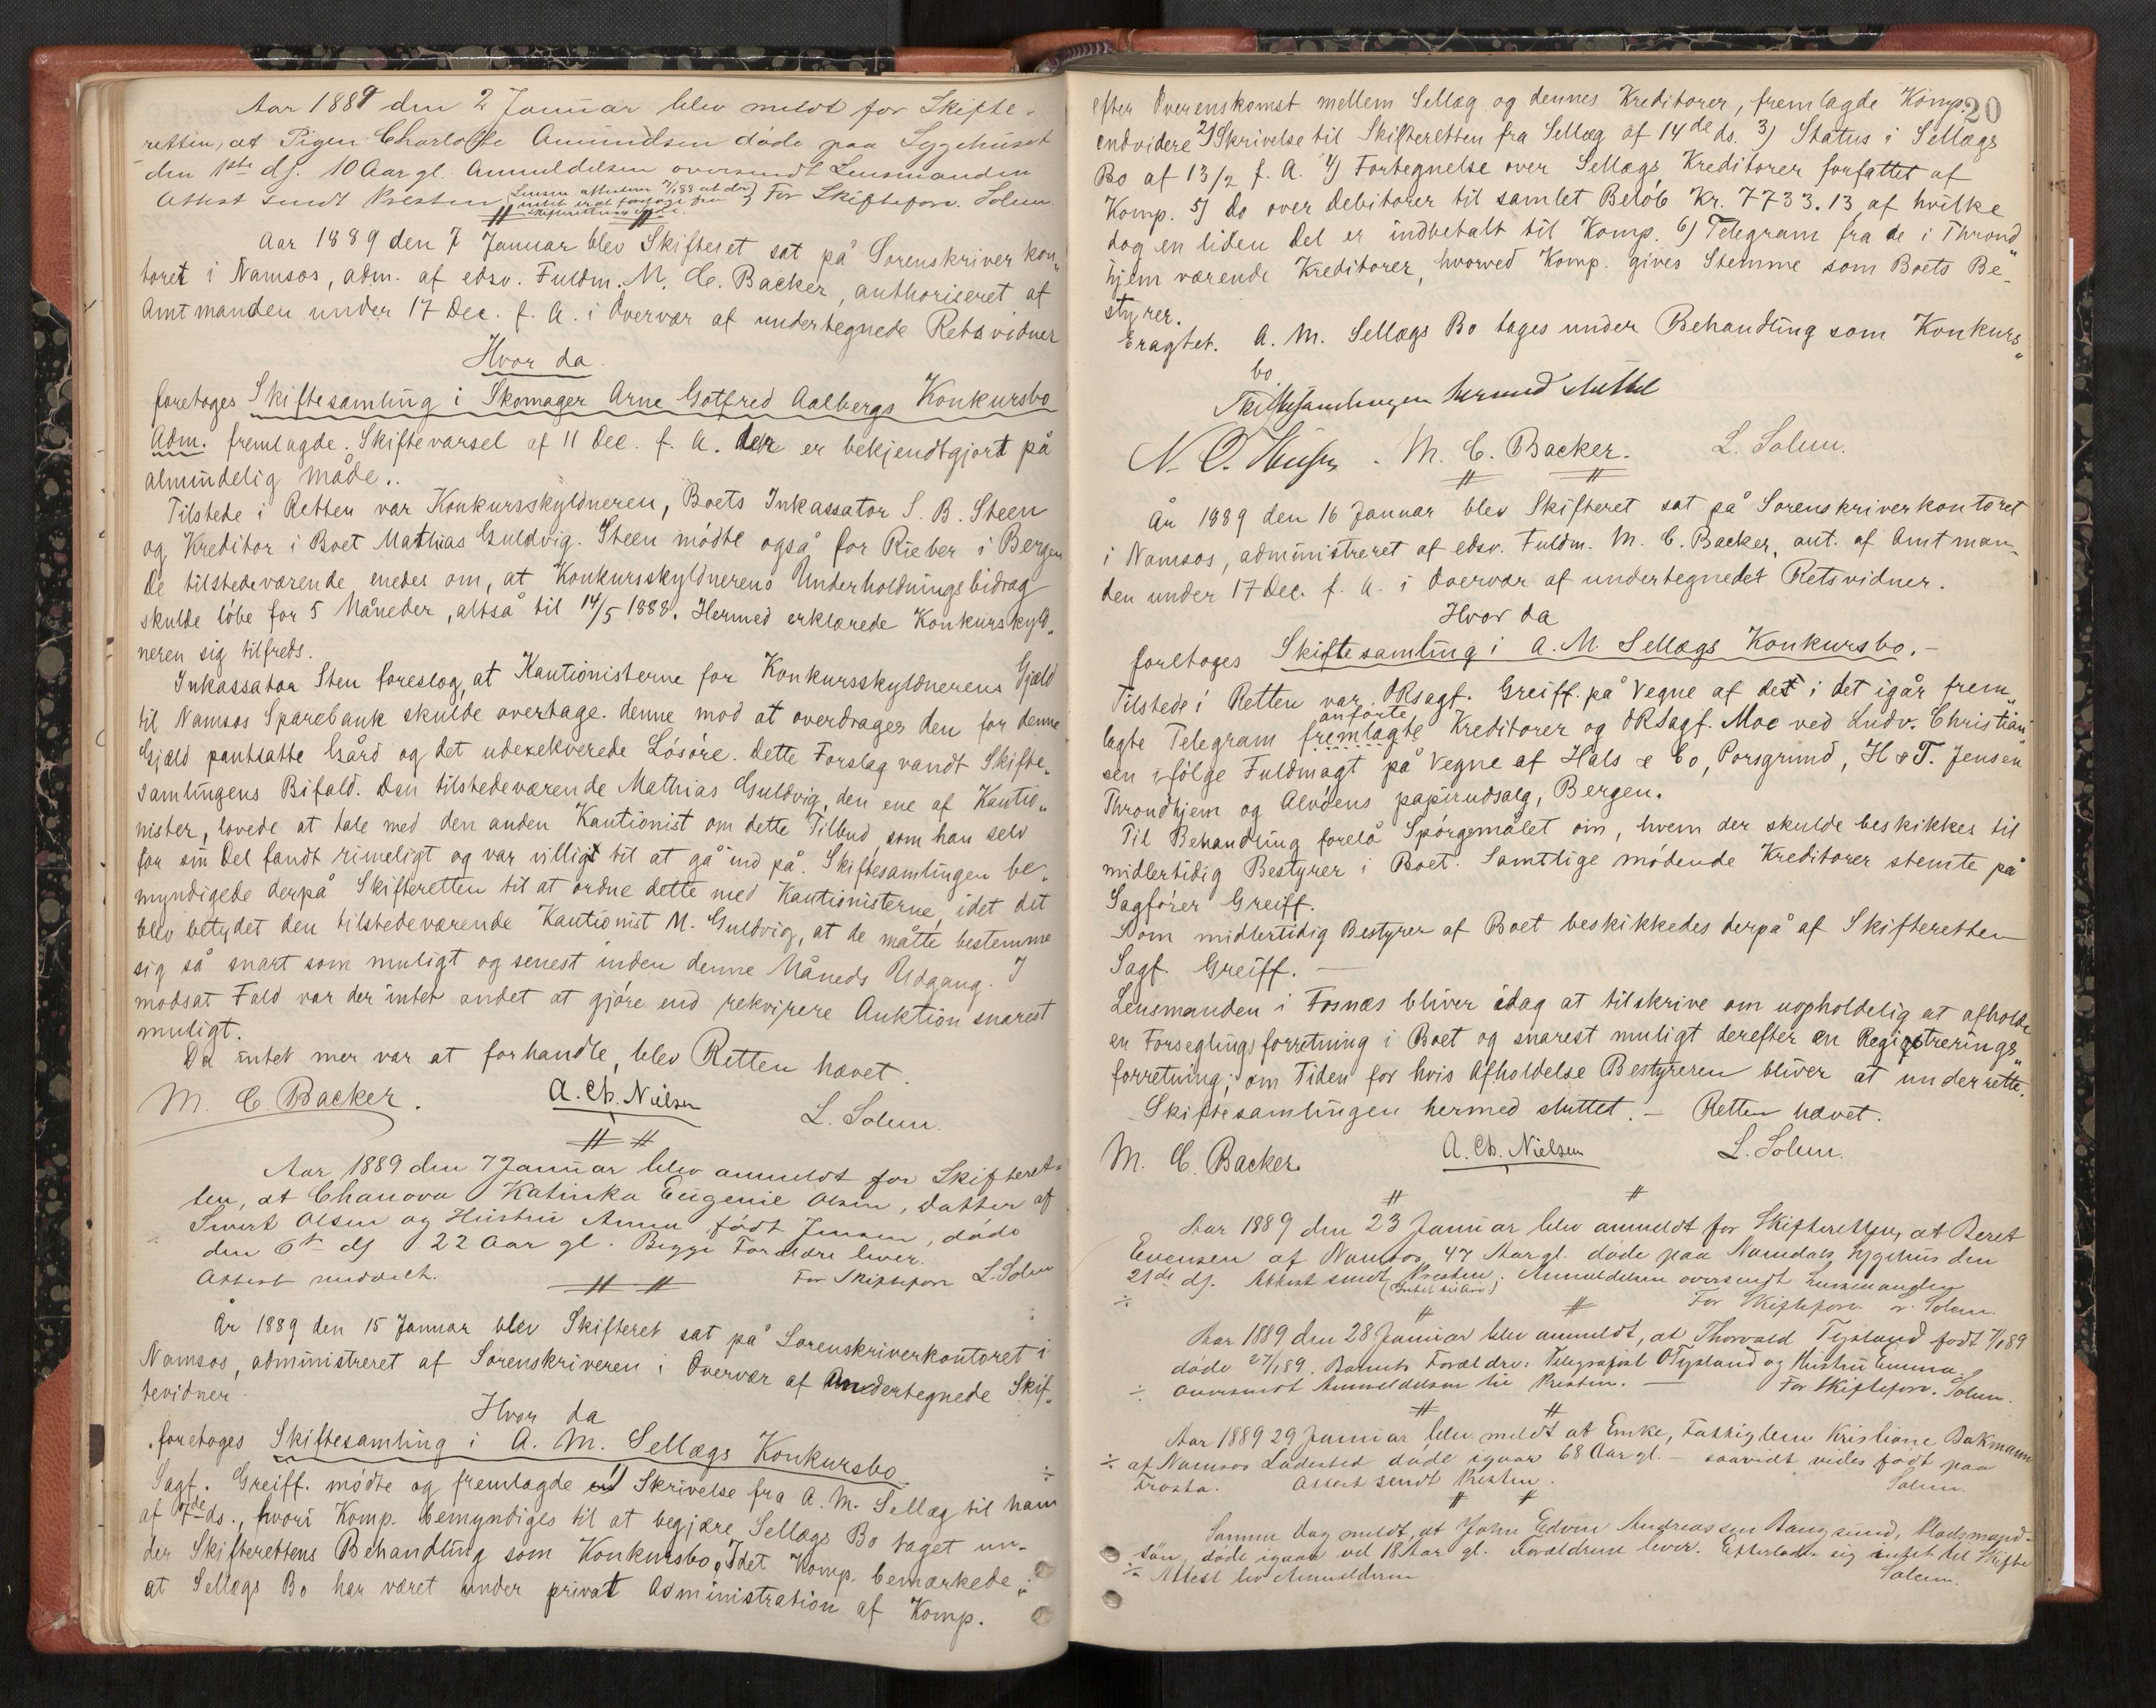 Aar 1889 den 2 Januar blev meldt for Skifte-
retten, at Pigen Charlotte Amundsen døde paa Sygehuset
den 1ste ds. 10 Aar gl. Anmeldelsen oversendt Lensmanden
Attest sendt Presten. For Skifteforv. Solem.
Aar 1889 den 7 Januar blev Skifteret sat på Sorenskriverkon„
toret i Namsos, adm. af edsv. Fuldm. M. C. Backer, authoriseret af
Amtmanden under 17 Dec. f. A. i Overvær af undertegnede Retsvidner
Hvor da
foretoges Skiftesamling i Skomager Arne Gotfred Aalbergs Konkursbo
Adm. fremlagde Skiftevarsel af 11 Dec. f. A. der er bekjendtgjort på
almindelig Måde..
Tilstede i Retten var Konkursskyldneren, Boets Inkassator S. B. Steen
og Kreditor i Boet Mathias Guldvig. Steen mødte også for Rieber i Bergen
De tilstedeværende enedes om, at Konkursskyldnerens Underholdningsbidrag
skulde løbe for 5 Måneder, altså til 14/5 1888. Hermed erklærede Konkursskyld„
neren sig tilfreds.
Inkassator Sten foreslog, at Kautionisterne for Konkursskyldnerens Gjæld
til Namsos Sparebank skulde overtage denne mod at overdrages den for denne
Gjæld pantsatte Gård og det udexekverede Løsøre. Dette Forslag vandt Skifte„
samlingens Bifald. Den tilstedeværende Mathias Guldvig, den ene af Kautio„
nister, lovede at tale med den anden Kautionist om dette Tilbud, som han selv
for sin Del fandt rimeligt og var villigt til at gå ind på. Skiftesamlingen be„
myndigede derpå Skifteretten til at ordne dette med Kautionisterne, idet det
blev betydet den tilstedeværende Kautionist M. Guldvig, at de måtte bestemme
sig så snart som muligt og senest inden denne Måneds Udgang. I
modsat Fald var der intet andet at gjøre end rekvirere Auktion snarest
muligt.
Da intet mer var at forhandle, blev Retten hævet.
M. C. Backer. A. Ch. Nielsen L. Solem.
Aar 1889 den 7 Januar blev anmeldt for Skifteret-
ten, at Chanova Katinka Eugenie Olsen, Datter af
Sivert Olsen og Hustru Anna født Jensen, døde
den 6te ds 22 Aar gl. Begge Forældre lever.
Attest meddelt. For Skifteforv L. Solem
År 1889 den 15 Januar blev Skifteret sat på Sorenskriverkontoret i
Namsos, administreret af Sorenskriveren i Overvær af Undertegnede Skif„
tevidner
Hvor da
foretoges Skiftesamling i A. M. Sellægs Konkursbo.
Sagf. Greiff. mødte og fremlagde 1) Skrivelse fra A. M. Sellæg til ham
af 7de ds., hvori Komp. bemyndiges til at begjære Sellægs Bo taget un-
der Skifterettens Behandling som Konkursbo, Idet Komp. bemærkede,
at Sellægs Bo har været under privat Administration af Komp.
20
efter Overenskomst mellem Sellæg og dennes Kreditorer, fremlagde Komp.
endvidere 2) Skrivelse til Skifteretten fra Sellæg af 14de ds. 3) Status i Sellægs
Bo af 13/2 f. A. 4) Fortegnelse over Sellægs Kreditorer forfattet af
Komp. 5) do over Debitorer til samlet Beløb Kr. 7733.13, af hvilke
dog en liden Del er indbetalt til Komp. 6) Telegram fra de i Thrond„
hjem værende Kreditorer, hvorved Komp. gives Stemme som Boets Be-
styrer.
Eragtet. A. M. Sellægs Bo tages under Behandling som Konkurs„
bo
Skiftesamlingen hermed sluttet
M. C. Backer. L. Solem.
År 1889 den 16 Januar blev Skifteret sat på Sorenskriverkontoret
i Namsos, administreret af edsv. Fuldm. M. C. Backer, aut. af Amtman„
den under 17 Dec. f. A. i Overvær af undertegnedet Retsvidner.
Hvor da
foretoges Skiftesamling i A. M. Sellægs Konkursbo. –
Tilstede i Retten var ORsagf. Greiff. på Vegne af det i det igår frem„
anførte
lagte Telegram fremlagte Kreditorer og ORSagf. Moe ved Ludv. Christian„
sen ifølge Fuldmagt på Vegne af Hals & Co, Porsgrund, H & T. Jensen
Throndhjem og Alvøens papirudsalg, Bergen.
Til Behandling forelå Spørgsmålet om, hvem der skulde beskikkes til
midlertidig Bestyrer i Boet. Samtlige mødende Kreditorer stemte på
Sagfører Greiff.
Som midlertidig Bestyrer af Boet beskikkedes derpå af Skifteretten
Sagf. Greiff. –
Lensmanden i Fosnæs bliver idag at tilskrive om uopholdelig at afholde
en Forseglingsforretning i Boet og snarest muligt derefter en Registrerings„
forretning; om Tiden for hvis Afholdelse Bestyreren bliver at underrette.
Skiftesamlingen hermed sluttet. – Retten hævet.
M. C. Backer. A. Ch. Nielsen L. Solem.
Aar 1889 den 23 Januar blev anmeldt for Skifteretten, at Beret
Evensen af Namsos, 47 Aar gl. døde paa Namdals Sygehus den
21de ds. Attest sendt Presten. Anmeldelsen oversendt Lensmanden
For Skifteforv. L. Solem.
Aar 1889 den 28 Januar blev anmeldt, at Thorvald Tysland født 7/1 89
døde 27/1 89. Barnets Forældre: Telegrafist O Tysland og Hustru Emma.
oversendt Anmeldelsen til Presten. – For Skifteforv. Solem.
Aar 1889 29 Januar blev meldt at Enke, Fattiglem Kristiane Bakmann
af Namsos Ladested døde igaar 68 Aar gl. – saavidt vides født paa
Frosta. Attest sendt Presten. Solem.
Samme Dag meldt, at John Edvin Andreassen Bangsund, Pladsmand-
søn, døde igaar vel 18 Aar gl. Forældrene lever. Efterlader sig intet til Skifte
Attest lev Anmelderen Solem.